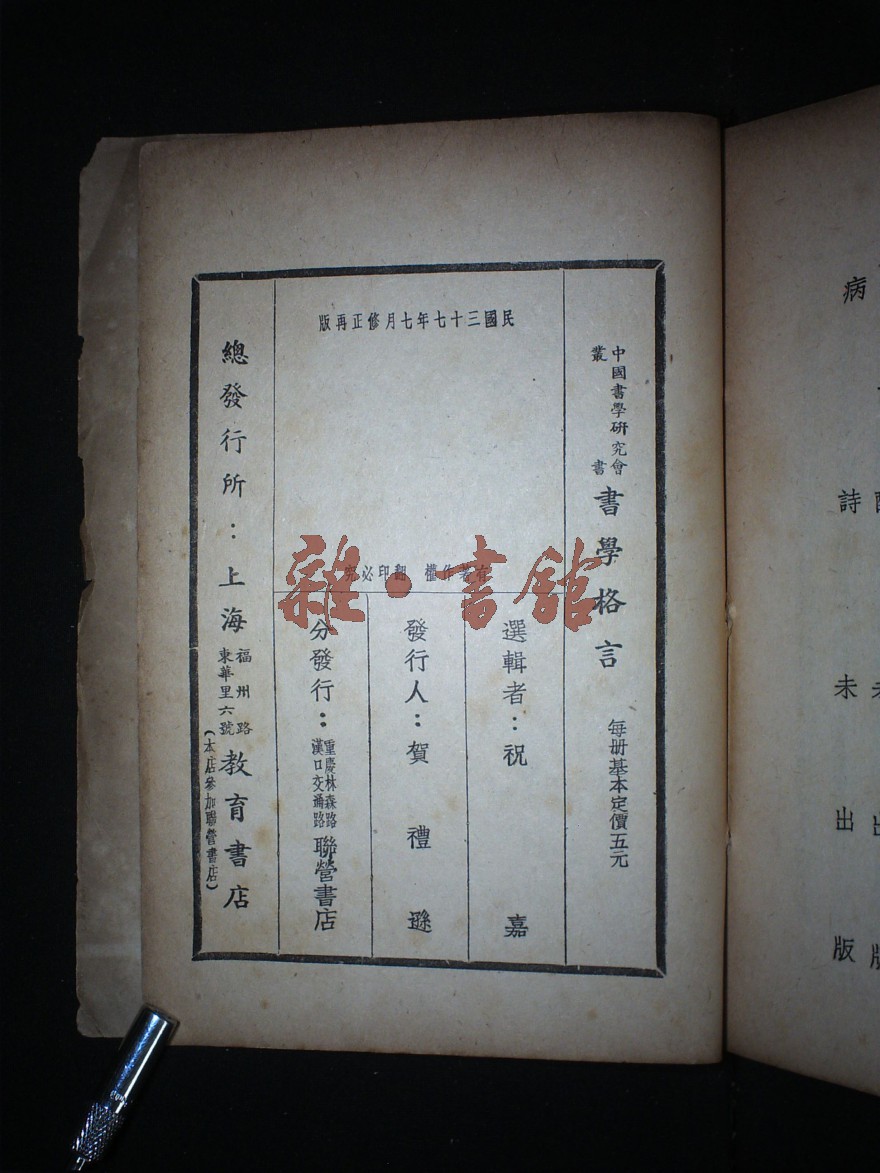 民國三十七年七月修正再版
中國書學研究會
叢書
書學格言
每册基本定價五元
有著作權 翻印必究
選輯者：祝嘉
發行人：賀禮遜
分發行：
重慶林森路
漢口交通路
聯營書店
總發行所：上海
福州路
東華里六號
教育書店
（本店參加聯營書店）
雜·書館
病
詩
未
出
版